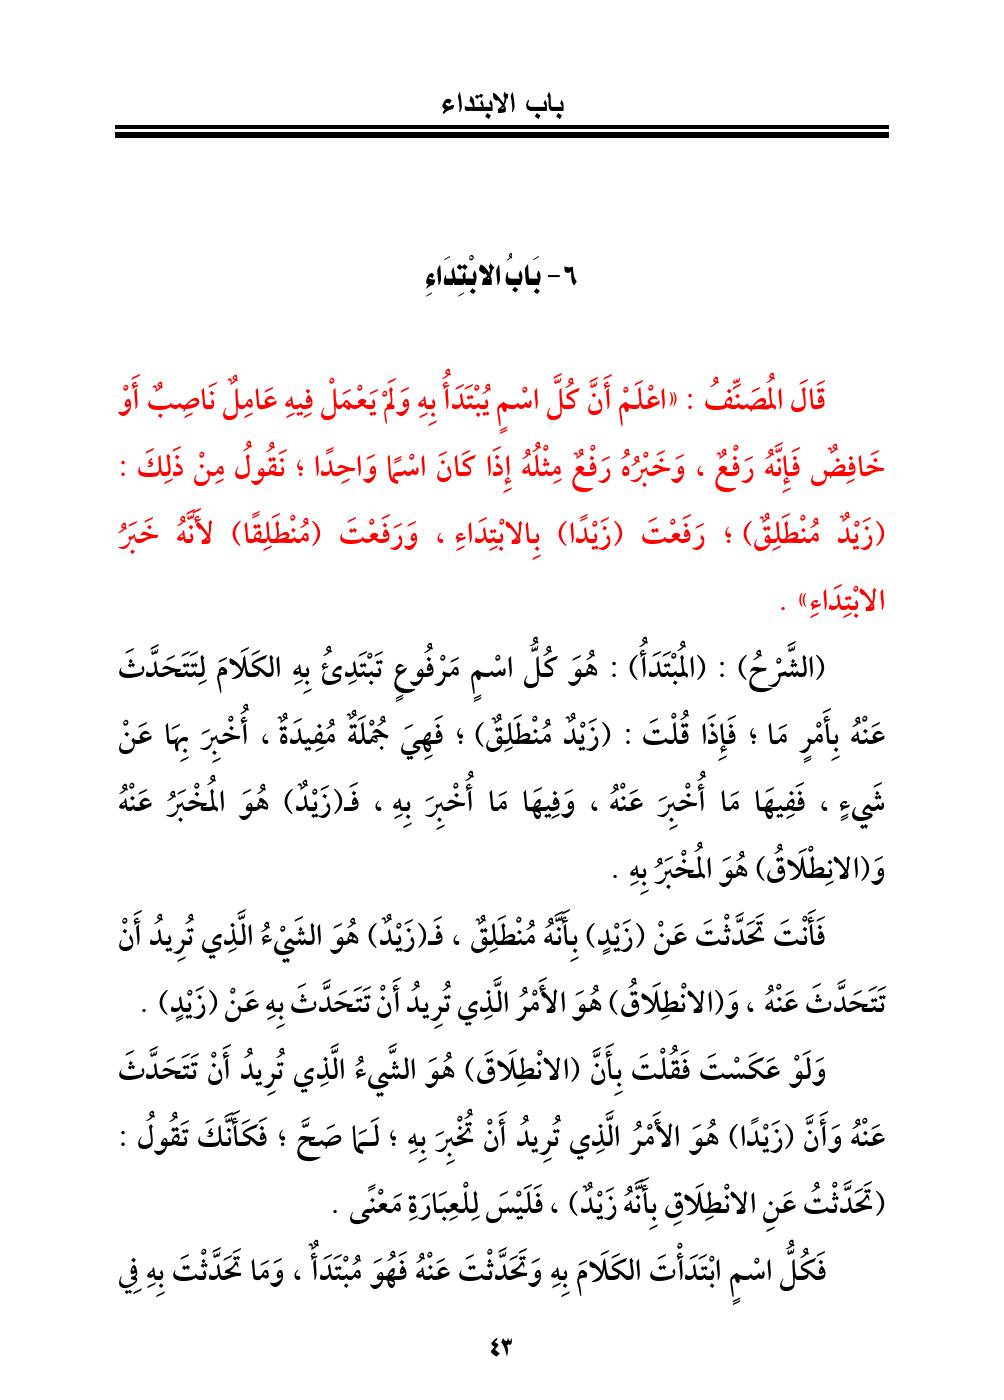 باب الابتداء
٦- بَابُ الابْتِدَاءِ
قَالَ المُصَنِّفُ : «اعْلَمْ أَنَّ كُلَّ اسْمٍ يُبْتَدَأُ بِهِ وَلَمْ يَعْمَلْ فِيهِ عَامِلٌ نَاصِبٌ أَوْ
خَافِضٌ فَإِنَّهُ رَفْعٌ ، وَخَبْرُهُ رَفْعٌ مِثْلُهُ إِذَا كَانَ اسْمًا وَاحِدًا ؛ نَقُولُ مِنْ ذَلِكَ :
(زَيْدٌ مُنْطَلِقٌ) ؛ رَفَعْتَ (زَيْدًا) بِالابْتِدَاءِ ، وَرَفَعْتَ (مُنْطَلِقًا) لأَنَّهُ خَبَرُ
الابْتِدَاءِ» .
(الشَّرْحُ) : (المُبْتَدَأُ) : هُوَ كُلُّ اسْمٍ مَرْفُوعٍ تَبْتَدِئُ بِهِ الكَلَامَ لِتَتَحَدَّثَ
عَنْهُ بِأَمْرٍ مَا ؛ فَإِذَا قُلْتَ : (زَيْدٌ مُنْطَلِقٌ) ؛ فَهِيَ جُمْلَةٌ مُفِيدَةٌ ، أُخْبِرَ بِهَا عَنْ
شَيءٍ ، فَفِيهَا مَا أُخْبِرَ عَنْهُ ، وَفِيهَا مَا أُخْبِرَ بِهِ ، فَـ(زَيْدٌ) هُوَ المُخْبَرُ عَنْهُ
وَ(الانِطْلَاقُ) هُوَ المُخْبَرُ بِهِ .
فَأَنْتَ تَحَدَّثْتَ عَنْ (زَيْدٍ) بِأَنَّهُ مُنْطَلِقٌ ، فَـ(زَيْدٌ) هُوَ الشَيْءُ الَّذِي تُرِيدُ أَنْ
تَتَحَدَّثَ عَنْهُ ، وَ(الانْطِلَاقُ) هُوَ الأَمْرُ الَّذِي تُرِيدُ أَنْ تَتَحَدَّثَ بِهِ عَنْ (زَيْدٍ) .
وَلَوْ عَكَسْتَ فَقُلْتَ بِأَنَّ (الانْطِلَاقَ) هُوَ الشَّيءُ الَّذِي تُرِيدُ أَنْ تَتَحَدَّثَ
عَنْهُ وَأَنَّ (زَيْدًا) هُوَ الأَمْرُ الَّذِي تُرِيدُ أَنْ تُخْبِرَ بِهِ ؛ لَـمَا صَحَّ ؛ فَكَأَنَّكَ تَقُولُ :
(تَحَدَّثْتُ عَنِ الانْطِلَاقِ بِأَنَّهُ زَيْدٌ) ، فَلَيْسَ لِلْعِبَارَةِ مَعْنًى .
فَكُلُّ اسْمٍ ابْتَدَأْتَ الكَلَامَ بِهِ وَتَحَدَّثْتَ عَنْهُ فَهُوَ مُبْتَدَأٌ ، وَمَا تَحَدَّثْتَ بِهِ فِي
٤٣